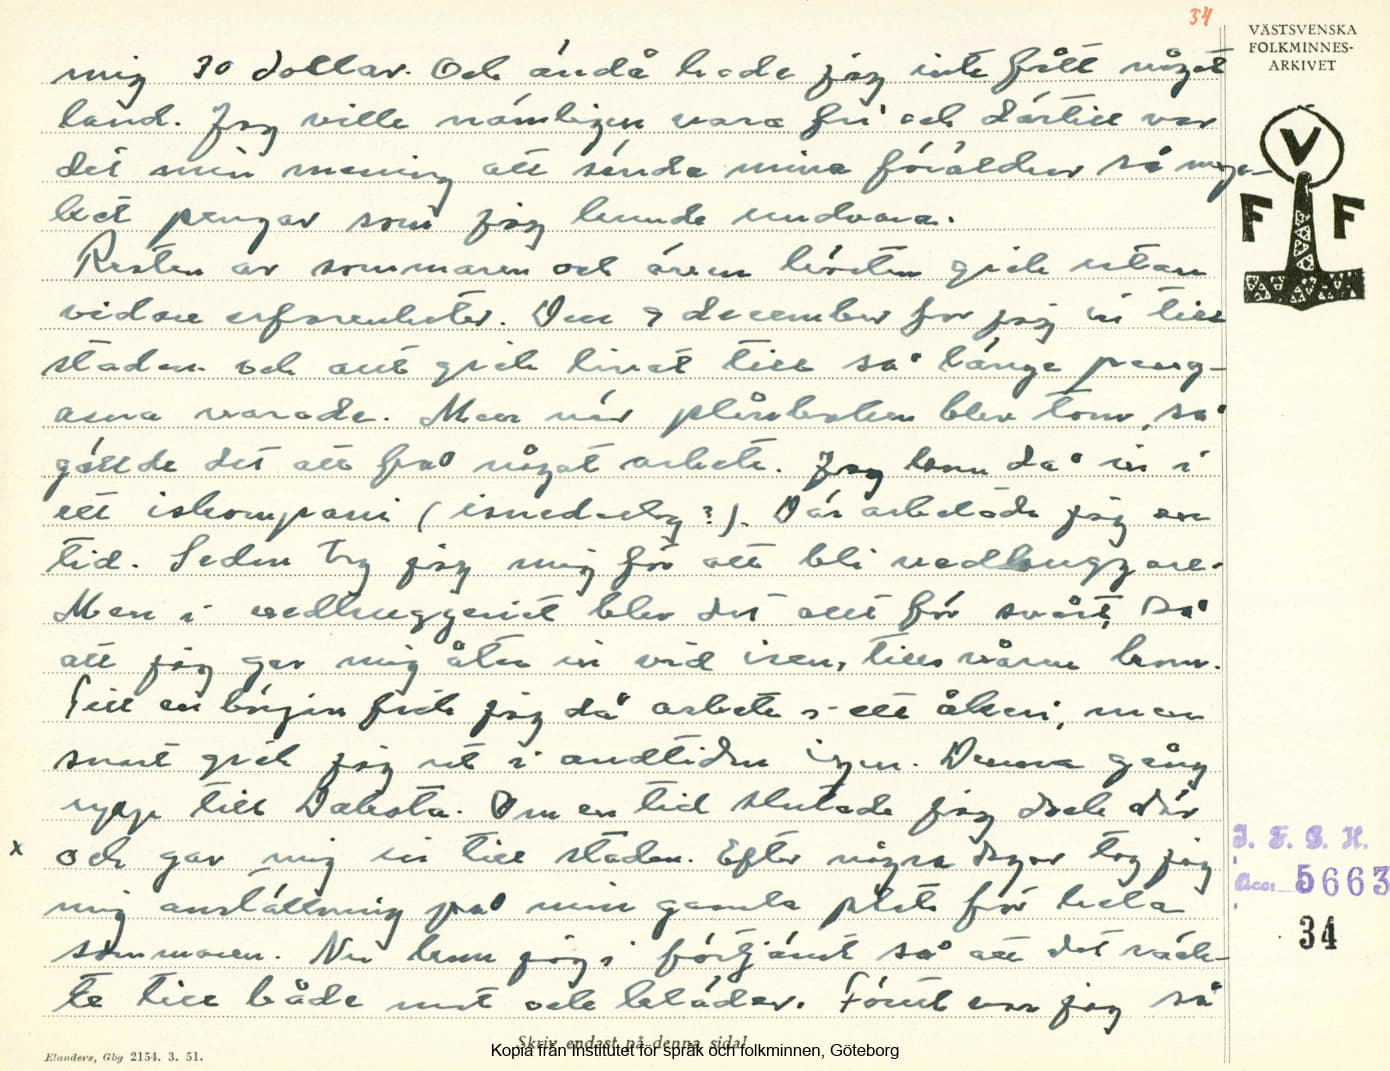 34
VÄSTSVENSKA
FOLKMINNES-
ARKIVET
V
F F
mig 30 dollar. Och ändå hade jag inte fått något
land. Jag ville nämligen vara fri och därtill var
det min mening att sända mina föräldrar så myc-
ket pengar som jag kunde undvara.
Resten av sommaren och även hösten gick utan
vidare erfarenheter. Den 9 december for jag in till
staden och allt gick livat till så länge peng-
arna varade. Men när plånboken blev tom, så
gällde det att få något arbete. Jag kom då in i
ett iskompani (isnederlag?). Där arbetade jag en
tid. Sedan tog jag mig för att bli vedhuggare.
Men i vedhuggeriet blev det allt för svårt, så
att jag gav mig åter in vid isen, tills våren kom.
Till en början fick jag då arbete i ett åkeri, men
snart gick jag ut i andtiden igen. Denna gång
upp till Dakota. Om en tid slutade jag dock där
x och gav mig in till staden. Efter några dagar tog jag
mig anställning på min gamla plats för hela
sommaren. Nu kom jag i förtjänst så att det räck-
te till både mat och kläder. Förut var jag så
I. F. G. H.
Acc: 5663
34
Skriv endast på denna sida!
Elanders, Gbg 2154. 3. 51.
Kopia från Institutet för språk och folkminnen, Göteborg